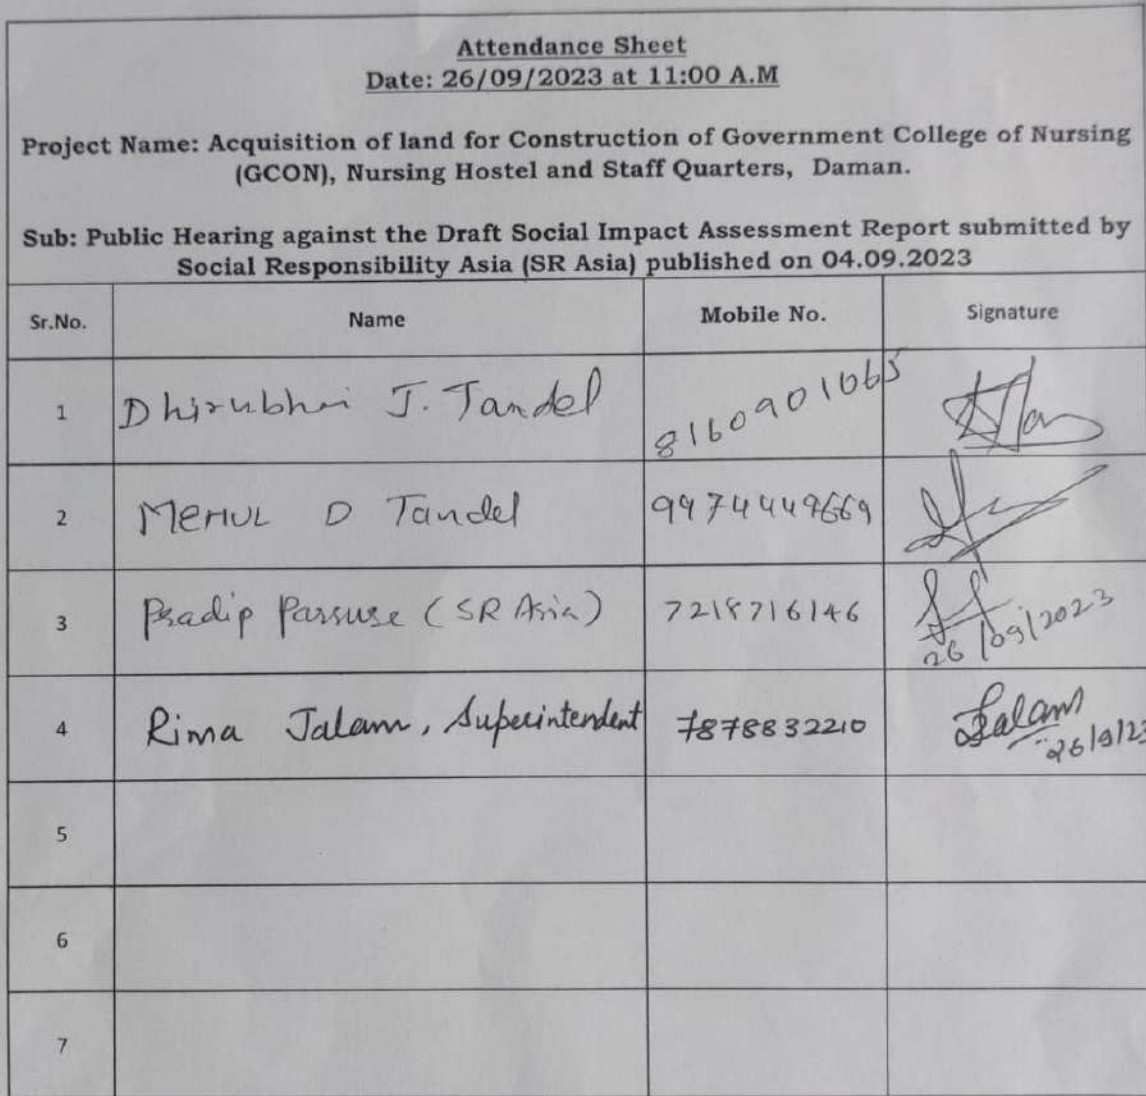 Attendance Sheet
Date: 26/09/2023 at 11:00 A.M
Project Name: Acquisition of land for Construction of Government College of Nursing
(GCON), Nursing Hostel and Staff Quarters, Daman.
Sub: Public Hearing against the Draft Social Impact Assessment Report submitted by
Social Responsibility Asia (SR Asia) published on 04.09.2023
Sr.No. Name Mobile No. Signature
1 Dhirubhai J. Tandel 8160901065
2 MEHUL D Tandel 9974449669
3 Pradip Parsuse (SR Asia) 7218716146 26/09/2023
4 Rima Jalam, Superintendent 7878832210 Jalam 26/9/23
5
6
7